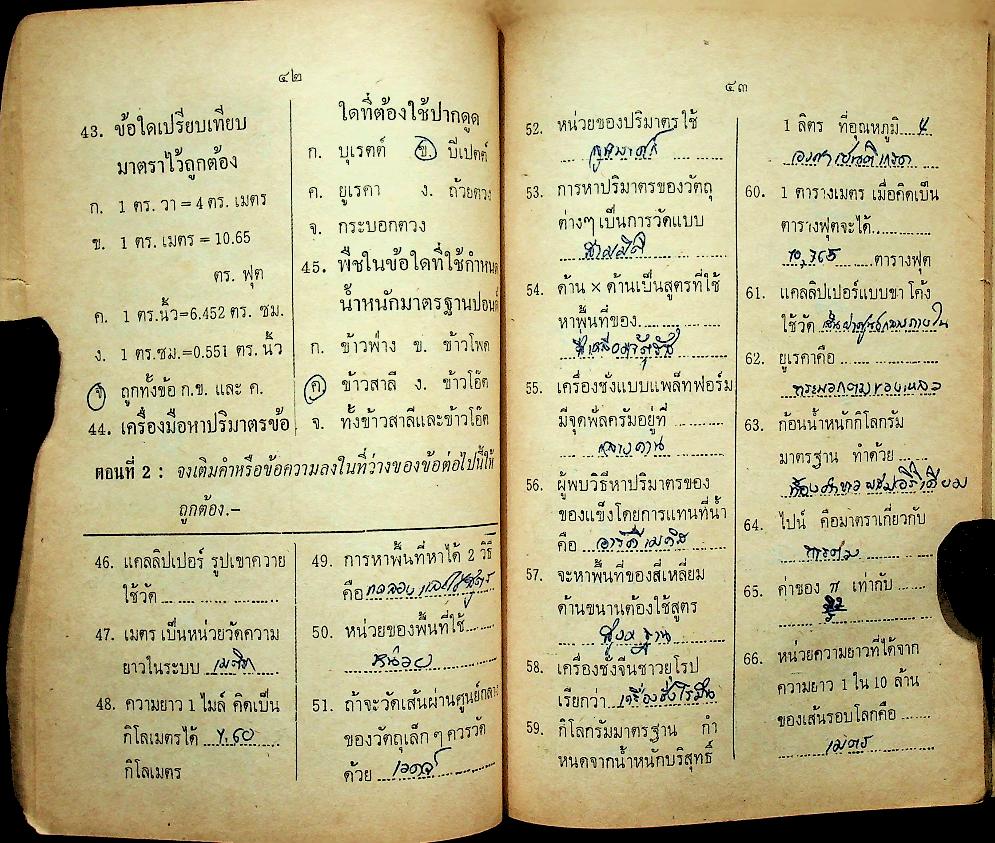 ๔๒
43. ข้อใดเปรียบเทียบ
มาตราไว้ถูกต้อง
ก. 1 ตร. วา = 4 ตร. เมตร
ข. 1 ตร. เมตร = 10.65
ตร. ฟุต
ค. 1 ตร.นิ้ว=6.452 ตร. ซม.
ง. 1 ตร.ซม.=0.551 ตร. นิ้ว
จ ถูกทั้งข้อ ก.ข. และ ค.
44. เครื่องมือหาปริมาตรข้อ
ใดที่ต้องใช้ปากดูด
ก. บุเรตต์ ข. บีเปตต์
ค. ยูเรคา ง. ถ้วยตวง
จ. กระบอกตวง
45. พืชในข้อใดที่ใช้กำหนด
น้ำหนักมาตรฐานปอนด์
ก. ข้าวฟ่าง ข. ข้าวโพด
ค ข้าวสาลี ง. ข้าวโอ๊ต
จ. ทั้งข้าวสาลีและข้าวโอ๊ต
ตอนที่ 2 : จงเติมคำหรือข้อความลงในที่ว่างของข้อต่อไปนี้ให้
ถูกต้อง.–
46. แคลลิปเปอร์ รูปเขาควาย
ใช้วัด
47. เมตร เป็นหน่วยวัดความ
ยาวในระบบ เมตริก
48. ความยาว 1 ไมล์ คิดเป็น
กิโลเมตรได้ 1.60
กิโลเมตร
49. การหาพื้นที่หาได้ 2 วิธี
คือ ทดลอง และใช้สูตร
50. หน่วยของพื้นที่ใช้
หน่วย
51. ถ้าจะวัดเส้นผ่านศูนย์กลาง
ของวัตถุเล็ก ๆ ควรวัด
ด้วย เวดจ์
๔๓
52. หน่วยของปริมาตร ใช้
ลูกบาศก์
53. การหาปริมาตรของวัตถุ
ต่างๆ เป็นการวัดแบบ
สามมิติ
54. ด้าน × ด้านเป็นสูตรที่ใช้
หาพื้นที่ของ
สี่เหลี่ยมจัตุรัส
55. เครื่องชั่งแบบแพล็ทฟอร์ม
มีจุดฟัลครัมอยู่ที่
กลางคาน
56. ผู้พบวิธีหาปริมาตรของ
ของแข็งโดยการแทนที่น้ำ
คือ อาร์คีเมดิส
57. จะหาพื้นที่ของสี่เหลี่ยม
ด้านขนานต้องใช้สูตร
สูง x ฐาน
58. เครื่องชั่งจีนชาวยุโรป
เรียกว่า เครื่องชั่งโรมัน
59. กิโลกรัมมาตรฐาน กำ
หนดจากน้ำหนักบริสุทธิ์
1 ลิตร ที่อุณหภูมิ 4
องศาเซนติเกรด
60. 1 ตารางเมตร เมื่อคิดเป็น
ตารางฟุตจะได้
10.765 ตารางฟุต
61. แคลลิปเปอร์แบบขา โค้ง
ใช้วัด เส้นผ่าศูนย์กลางภายใน
62. ยูเรคาคือ
กระบอกตวงของเหลว
63. ก้อนน้ำหนักกิโลกรัม
มาตรฐาน ทำด้วย
ทองคำขาวผสมอิริเดียม
64. ไปน์ คือมาตราเกี่ยวกับ
การตวง
65. ค่าของ π เท่ากับ
66. หน่วยความยาวที่ได้จาก
ความยาว 1 ใน 10 ล้าน
ของเส้นรอบโลกคือ
เมตร